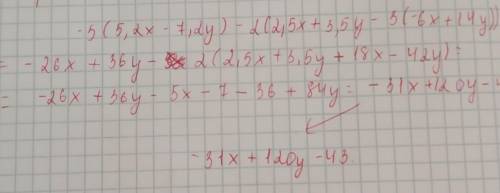 -5(5,2x - 7,2y) - 2(2,5x + 3,5y - 3(-6x + 14y))
= -26x + 36y - 2(2,5x + 3,5y + 18x - 42y) =
= -26x + 36y - 5x - 7 - 36 + 84y = -31x + 120y - 4
-31x + 120y - 43